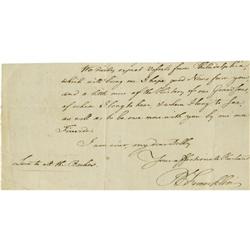 We daily expect Vessels from Philadelphia,
which will bring me I hope good News from you
and a little more of the History of our Grandson,
of whom I long to hear & whom I long to see,
as well as to be once more with you by our own
Fireside.
I am ever my dear Debby
Your affectionate Husband
Love to Mr &
B Franklin